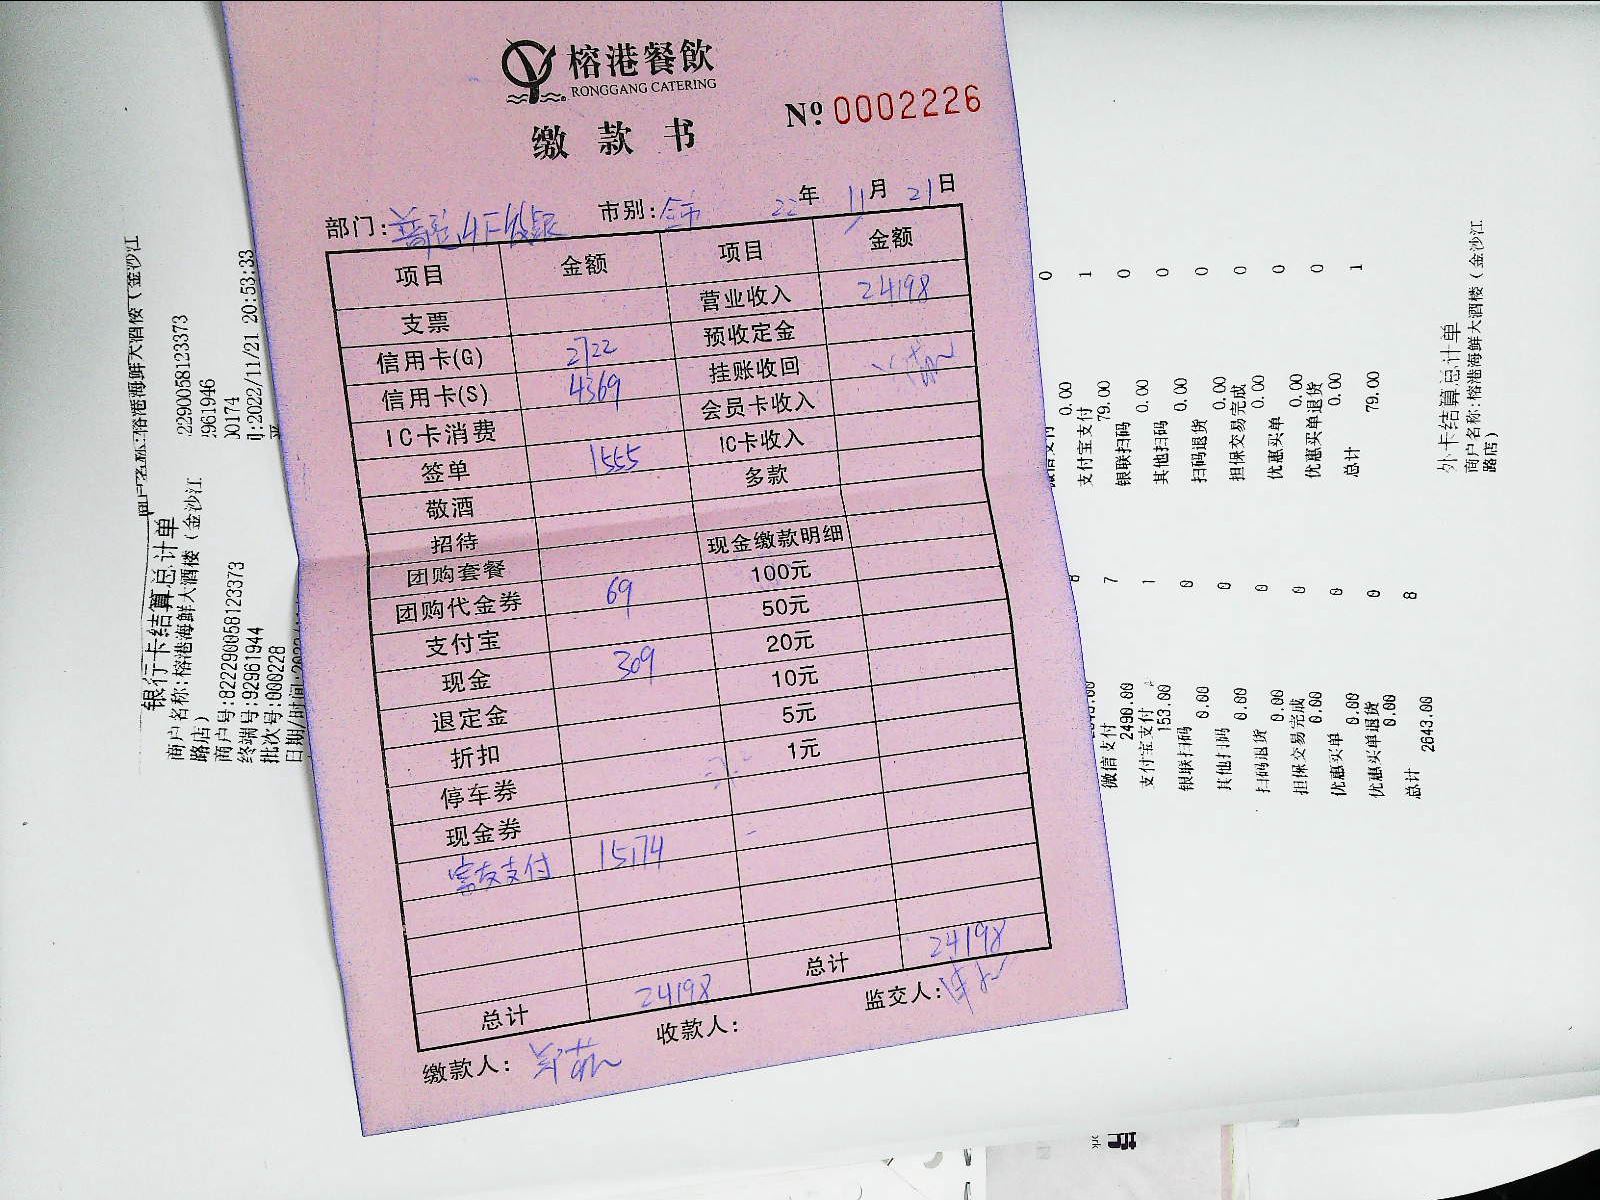 榕港餐飲
RONGGANG CATERING
缴款书
Nº 0002226
部门: 普陀4F收银 市别: 全市 22年 11月 21日
项目 金额 项目 金额
支票 营业收入 24198
信用卡(G) 2722 预收定金
信用卡(S) 4369 挂账收回
IC卡消费 会员卡收入
签单 1555 IC卡收入
敬酒 多款
招待
团购套餐 现金缴款明细
团购代金券 69 100元
支付宝 50元
现金 309 20元
退定金 10元
折扣 5元
停车券 1元
现金券
富友支付 15174
总计 24198 总计 24198
缴款人: 收款人: 监交人:
商户名称:榕港海鲜大酒楼(金沙江
22290058123373
961946
00174
:2022/11/21 20:53:33
银行卡结算总计单
商户名称:榕港海鲜大酒楼(金沙江
路店)
商户号:822290058123373
终端号:92961944
批次号:000228
日期/时间:
0
0.00
支付宝支付 1
79.00
银联扫码 0
0.00
其他扫码 0
0.00
扫码退货 0
0.00
担保交易完成 0
0.00
优惠买单 0
0.00
优惠买单退货 0
0.00
总计 1
79.00
外卡结算总计单
商户名称:榕港海鲜大酒楼(金沙江
路店)
微信支付 7
2490.00
支付宝支付 1
153.00
银联扫码 0
0.00
其他扫码 0
0.00
扫码退货 0
0.00
担保交易完成 0
0.00
优惠买单 0
0.00
优惠买单退货 0
0.00
总计 8
2643.00